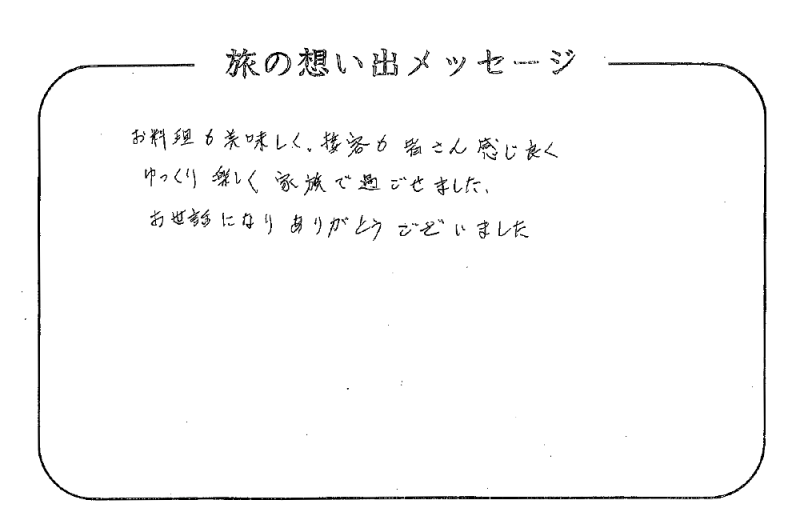 旅の想い出メッセージ
お料理も美味しく、接客も皆さん感じ良く
ゆっくり楽しく家族で過ごせました、
お世話になりありがとうございました